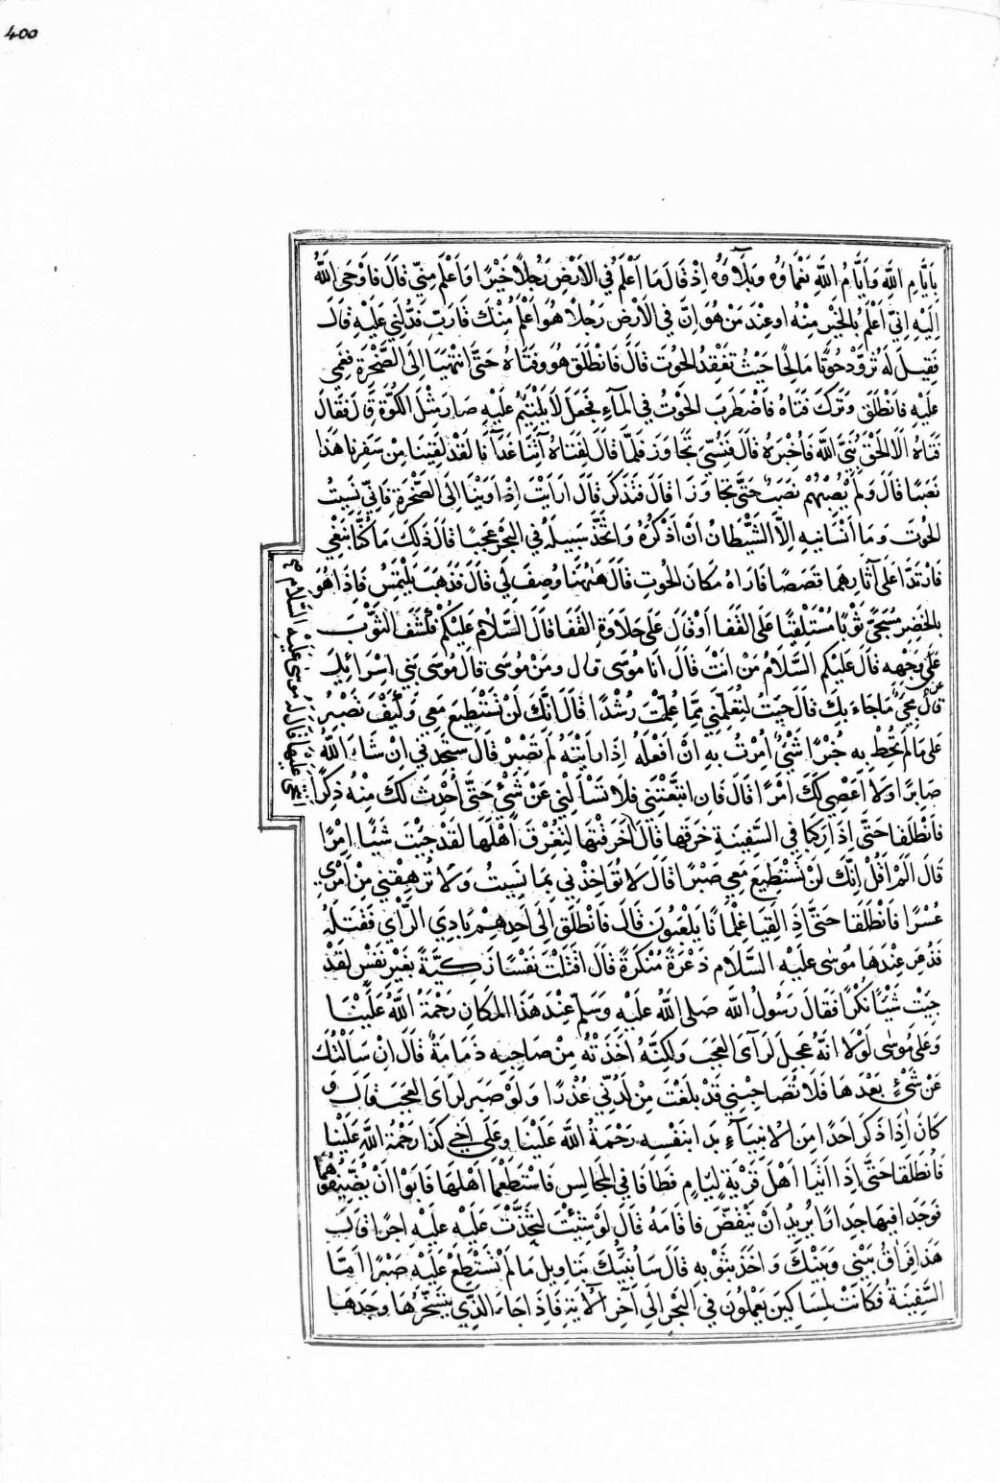 400
بِاَيَّامِ اللهِ وَاَيَّامُ اللهِ نَعْمَاؤُهُ وَبَلَاؤُهُ اِذْ قَالَ مَا اَعْلَمُ فِي الْاَرْضِ رَجُلًا خَيْرًا وَاَعْلَمَ مِنِّي قَالَ فَاَوْحَى اللهُ
اِلَيْهِ اِنِّي اَعْلَمُ بِالْخَيْرِ مِنْهُ اَوْ عِنْدَ مَنْ هُوَ اِنَّ فِي الْاَرْضِ رَجُلًا هُوَ اَعْلَمُ مِنْكَ قَالَ رَبِّ فَدُلَّنِي عَلَيْهِ قَالَ
فَقِيلَ لَهُ تَزَوَّدْ حُوتًا مَالِحًا حَيْثُ تَفْقِدُ الْحُوتَ قَالَ فَانْطَلَقَ هُوَ وَفَتَاهُ حَتَّى انْتَهَيَا اِلَى الصَّخْرَةِ فَعُمِّيَ
عَلَيْهِ فَانْطَلَقَ وَتَرَكَ فَتَاهُ فَاضْطَرَبَ الْحُوتُ فِي الْمَاءِ فَجَعَلَ لَا يَلْتَئِمُ عَلَيْهِ صَارَ مِثْلَ الْكُوَّةِ قَالَ فَقَالَ
فَتَاهُ اَلَا اَلْحَقُ نَبِيَّ اللهِ فَاُخْبِرَهُ قَالَ فَنُسِّيَ تَجَاوَزَ فَلَمَّا قَالَ لِفَتَاهُ آتِنَا غَدَاءَنَا لَقَدْ لَقِينَا مِنْ سَفَرِنَا هَذَا
نَصَبًا قَالَ وَلَمْ يُصِبْهُمْ نَصَبٌ حَتَّى تَجَاوَزَا قَالَ فَتَذَكَّرَ قَالَ اَرَاَيْتَ اِذْ اَوَيْنَا اِلَى الصَّخْرَةِ فَاِنِّي نَسِيتُ
الْحُوتَ وَمَا اَنْسَانِيهِ اِلَّا الشَّيْطَانُ اَنْ اَذْكُرَهُ وَاتَّخَذَ سَبِيلَهُ فِي الْبَحْرِ عَجَبًا قَالَ ذَلِكَ مَا كُنَّا نَبْغِي
فَارْتَدَّا عَلَى آثَارِهِمَا قَصَصًا فَاَرَاهُ مَكَانَ الْحُوتِ قَالَ هَهُنَا وُصِفَ لِي قَالَ فَذَهَبَ يَلْتَمِسُ فَاِذَا هُوَ
بِالْخَضِرِ مُسَجًّى ثَوْبًا مُسْتَلْقِيًا عَلَى الْقَفَا اَوْ قَالَ عَلَى حَلَاوَةِ الْقَفَا قَالَ السَّلَامُ عَلَيْكُمْ فَكَشَفَ الثَّوْبَ
عَلَى وَجْهِهِ قَالَ عَلَيْكُمُ السَّلَامُ مَنْ اَنْتَ قَالَ اَنَا مُوسَى قَالَ وَمَنْ مُوسَى قَالَ مُوسَى بَنِي اِسْرَائِيلَ
قَالَ مَجِيءٌ مَا جَاءَ بِكَ قَالَ جِئْتُ لِتُعَلِّمَنِي مِمَّا عُلِّمْتَ رُشْدًا قَالَ اِنَّكَ لَنْ تَسْتَطِيعَ مَعِي وَكَيْفَ تَصْبِرُ
عَلَى مَا لَمْ تُحِطْ بِهِ خُبْرًا شَيْءٌ اُمِرْتُ بِهِ اَنْ اَفْعَلَهُ اِذَا رَاَيْتَهُ لَمْ تَصْبِرْ قَالَ سَتَجِدُنِي اِنْ شَاءَ اللهُ
صَابِرًا وَلَا اَعْصِي لَكَ اَمْرًا قَالَ فَاِنِ اتَّبَعْتَنِي فَلَا تَسْاَلْنِي عَنْ شَيْءٍ حَتَّى اُحْدِثَ لَكَ مِنْهُ ذِكْرًا
فَانْطَلَقَا حَتَّى اِذَا رَكِبَا فِي السَّفِينَةِ خَرَقَهَا قَالَ اَخَرَقْتَهَا لِتُغْرِقَ اَهْلَهَا لَقَدْ جِئْتَ شَيْئًا اِمْرًا
قَالَ اَلَمْ اَقُلْ اِنَّكَ لَنْ تَسْتَطِيعَ مَعِيَ صَبْرًا قَالَ لَا تُؤَاخِذْنِي بِمَا نَسِيتُ وَلَا تُرْهِقْنِي مِنْ اَمْرِي
عُسْرًا فَانْطَلَقَا حَتَّى اِذَا لَقِيَا غِلْمَانًا يَلْعَبُونَ قَالَ فَانْطَلَقَ اِلَى اَحَدِهِمْ بَادِيَ الرَّاْيِ فَقَتَلَهُ
فَذُعِرَ عِنْدَهَا مُوسَى عَلَيْهِ السَّلَام ذَعْرَةً مُنْكَرَةً قَالَ اَقَتَلْتَ نَفْسًا زَكِيَّةً بِغَيْرِ نَفْسٍ لَقَدْ
جِئْتَ شَيْئًا نُكْرًا فَقَالَ رَسُولُ اللهِ صَلَى اللهُ عَلَيْهِ وَسَلَّمَ عِنْدَ هَذَا الْمَكَانِ رَحْمَةُ اللهِ عَلَيْنَا
وَعَلَى مُوسَى لَوْلَا اَنَّهُ عَجِلَ لَرَآى الْعَجَبَ وَلَكِنَّهُ اَخَذَتْهُ مِنْ صَاحِبِهِ ذَمَامَةٌ قَالَ اِنْ سَاَلْتُكَ
عَنْ شَيْءٍ بَعْدَهَا فَلَا تُصَاحِبْنِي قَدْ بَلَغْتَ مِنْ لَدُنِّي عُذْرًا وَلَوْ صَبَرَ لَرَاَى الْعَجَبَ قَالَ وَ
كَانَ اِذَا ذَكَرَ اَحَدًا مِنَ الْاَنْبِيَاءِ بَدَاَ بِنَفْسِهِ رَحْمَةُ اللهِ عَلَيْنَا وَعَلَى اَخِي كَذَا رَحْمَةُ اللهِ عَلَيْنَا
فَانْطَلَقَا حَتَّى اِذَا اَتَيَا اَهْلَ قَرْيَةٍ لِئَامٍ فَطَافَا فِي الْمَجَالِسِ فَاسْتَطْعَمَا اَهْلَهَا فَاَبَوْا اَنْ يُضَيِّفُوهُمَا
فَوَجَدَا فِيهَا جِدَارًا يُرِيدُ اَنْ يَنْقَضَّ فَاَقَامَهُ قَالَ لَوْ شِئْتَ لَتَّخَذْتَ عَلَيْهِ عَلَيْهِ اَجْرًا قَالَ
هَذَا فِرَاقُ بَيْنِي وَبَيْنِكَ وَاَخَذَ بِثَوْبِهِ قَالَ سَاُنَبِّئُكَ بِتَاْوِيلِ مَا لَمْ تَسْتَطِعْ عَلَيْهِ صَبْرًا اَمَّا
السَّفِينَةُ فَكَانَتْ لِمَسَاكِينَ يَعْمَلُونَ فِي الْبَحْرِ اِلَى آخِرِ الْاٰيَةِ فَاِذَا جَاءَ الَّذِي يُسَخِّرُهَا وَجَدَهَا
عَلَيْهَا فَقَالَ لَهُ مُوسَى عَلَيْهِ السَّلَامُ